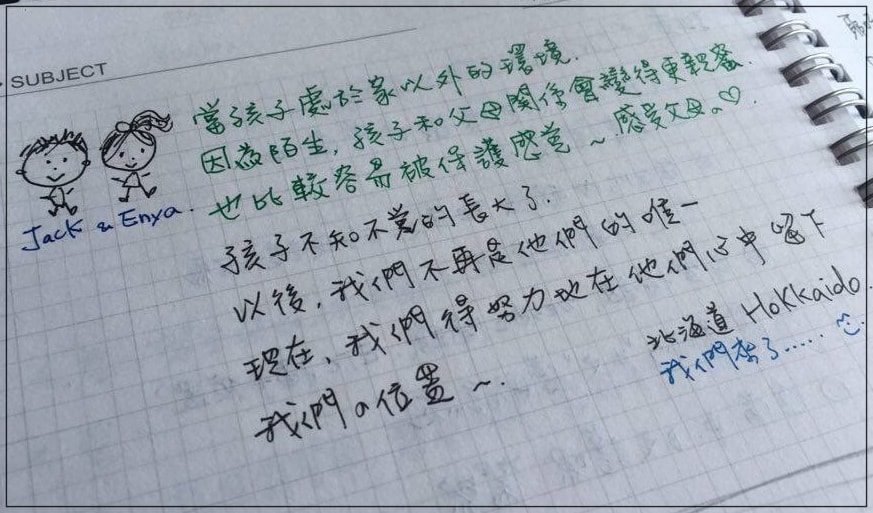 SUBJECT
當孩子處於家以外的環境.
因為陌生,孩子和父母關係會變得更親蜜.
也比較容易被保護感覺~感覺父母a♡.
Jack & Enya.
孩子不知不覺的長大了.
以後,我們不再是他們的唯一
現在,我們得努力地在他們心中留下
我們a位置~.
北海道 Hokkaido.
我們來了......